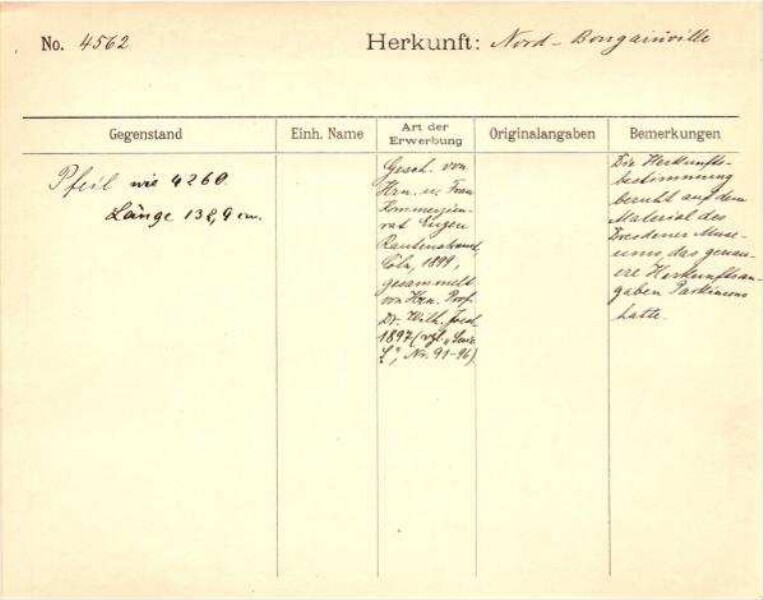 No. 4562
Herkunft: Nord-Bougainville
Gegenstand
Einh. Name
Art der
Erwerbung
Originalangaben
Bemerkungen
Pfeil wie 4260.
Länge 132,9 cm.
Gesch. von
Hrn. u. Frau
Kommerzien-
rat Eugen
Rautenstrauch,
Cöln, 1899,
gesammelt
von Hrn. Prof.
Dr. Wilh. Joest
1897 (vgl.
Nr. 91-96).
Die Herkunfts-
bestimmung
beruht auf dem
Material des
Dresdener Muse-
ums, das genau-
ere Herkunftsan-
gaben Parkinsons
hatte.